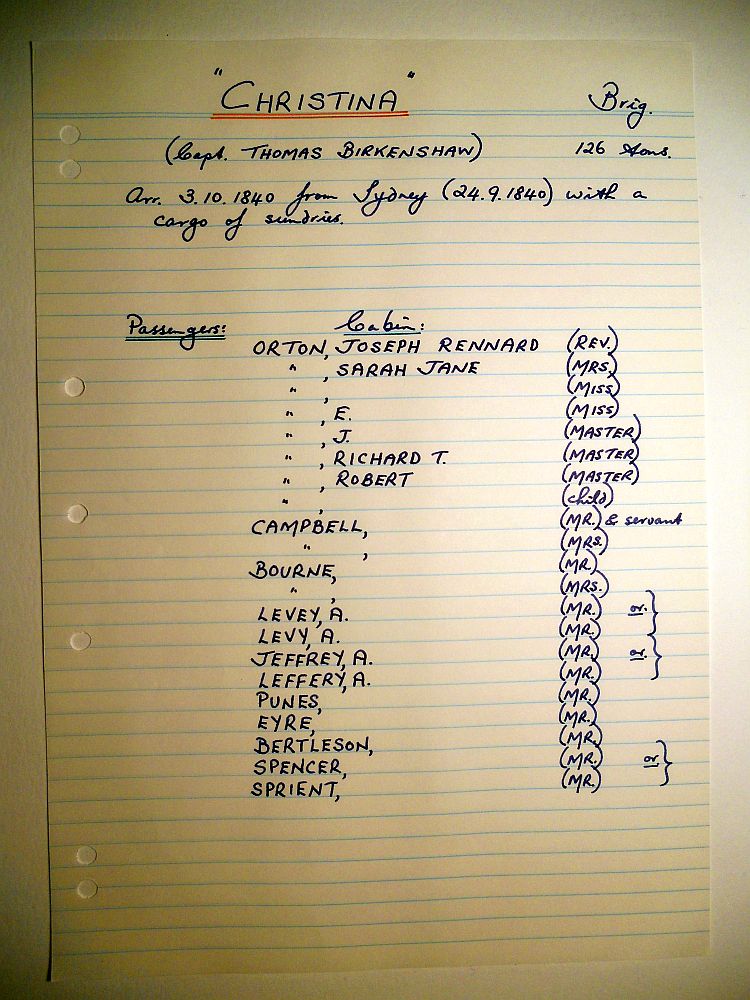 "CHRISTINA" Brig.
(Capt. THOMAS BIRKENSHAW) 126 tons.
Arr. 3.10.1840 from Sydney (24.9.1840) with a
cargo of sundries.
Passengers: Cabin:
ORTON, JOSEPH RENNARD (REV.)
" , SARAH JANE (MRS.)
" , (MISS)
" , E. (MISS)
" , J. (MASTER)
" , RICHARD T. (MASTER)
" , ROBERT (MASTER)
" , (child)
CAMPBELL, (MR.) & servant
" , (MRS.)
BOURNE, (MR.)
" , (MRS.)
LEVEY, A. (MR.) or. }
LEVY, A. (MR.)
JEFFREY, A. (MR.) or. }
LEFFERY, A. (MR.)
PUNES, (MR.)
EYRE, (MR.)
BERTLESON, (MR.)
SPENCER, (MR.) or }
SPRIENT, (MR.)